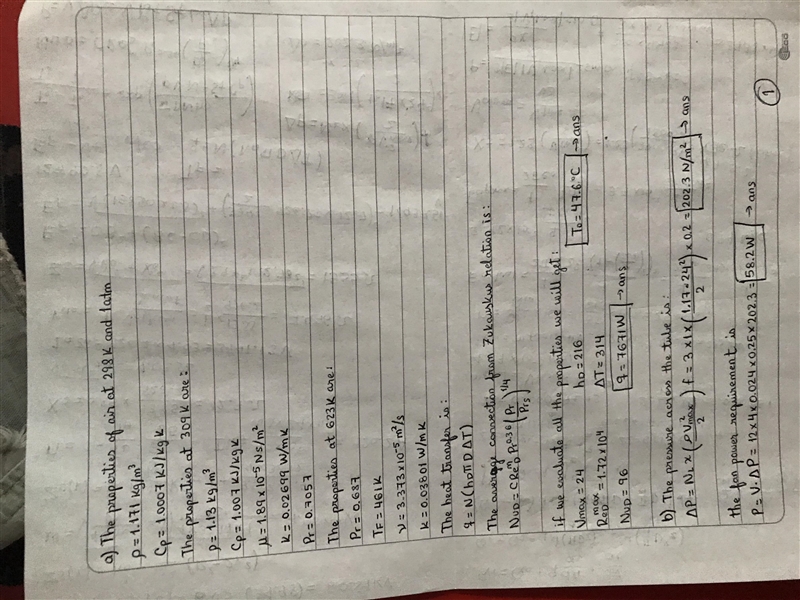 a) The properties of air at 298K and 1atm
ρ = 1.171 kg/m³
Cp = 1.0007 KJ/kg K
The properties at 309K are:
ρ = 1.13 kg/m³
Cp = 1.007 KJ/kg K
μ = 1.89 x 10⁻⁵ Ns/m²
K = 0.02699 W/mK
Pr = 0.7057
The properties at 623K are:
Pr = 0.687
TF = 461K
ν = 3.373 x 10⁻⁵ m²/s
K = 0.03801 W/mK
The heat transfer is:
q = N(hoπDΔT)
The average convection from Zukauskus relation is:
NuD = CReDᵐ Pr⁰·³⁶ (Pr/Prs)¹/⁴
If we evaluate all the properties we will get:
Vmax = 24 hD = 216 To = 47.6°C → ans
ReD max = 1.72 x 10⁴ ΔT = 314
NuD = 96 q = 7671W → ans
b) The pressure across the tube is:
ΔP = NL x (ρV²max/2) f = 3 x 1 x (1.17 * 24²/2) x 0.2 = 202.3 N/m² → ans
the fan power requirement is
P = V·ΔP = 12 x 4 x 0.024 x 0.25 x 202.3 = 58.2W → ans
1